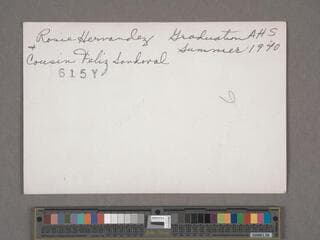 Rosie Hernandez Graduation AHS
+ Summer 1940
Cousin Feliz Sandoval
615Y